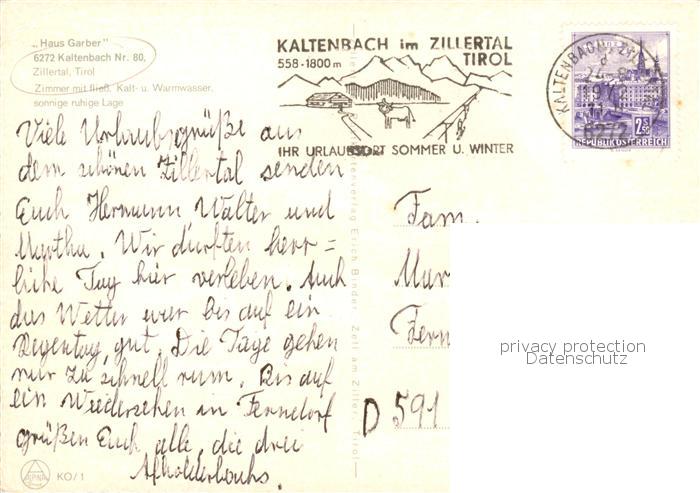 „Haus Garber"
6272 Kaltenbach Nr. 80,
Zillertal, Tirol
Zimmer mit fließ. Kalt- u. Warmwasser,
sonnige ruhige Lage
KALTENBACH im ZILLERTAL
TIROL
558-1800 m
IHR URLAUBSORT SOMMER U. WINTER
KALTENBACH, ZI
24.-8
6272
2.50
REPUBLIK ÖSTERREICH
Viele Urlaubsgrüße aus
dem schönen Zillertal senden
Euch Hermann Walter und
Martha. Wir durften herr=
liche Tag hier verleben. Auch
das Wetter war bis auf ein
Regentag, gut. Die Tage gehen
nur zu schnell rum. Bis auf
ein Wiedersehen in Ferndorf
grüßen Euch alle, die drei
Afholderbachs.
Fam.
Mar
Fern
D 591
privacy protection
Datenschutz
Kartenverlag Erich Binder, Zell am Ziller, Tirol
ALPINA
KO/1